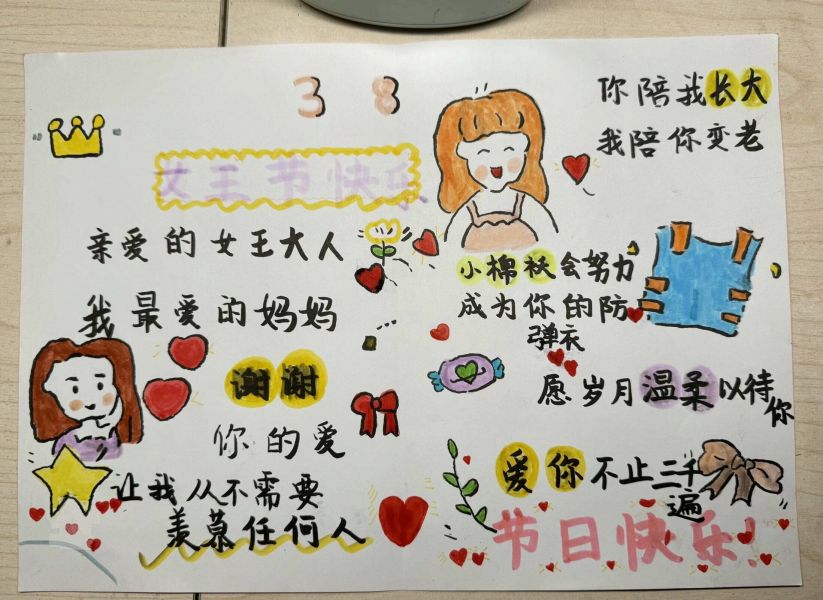 38
女王节快乐
亲爱的女王大人
我最爱的妈妈
谢谢
你的爱
让我从不需要
羡慕任何人
你陪我长大
我陪你变老
小棉袄会努力
成为你的防
弹衣
愿岁月温柔以待
你
爱你不止三千
遍
节日快乐!